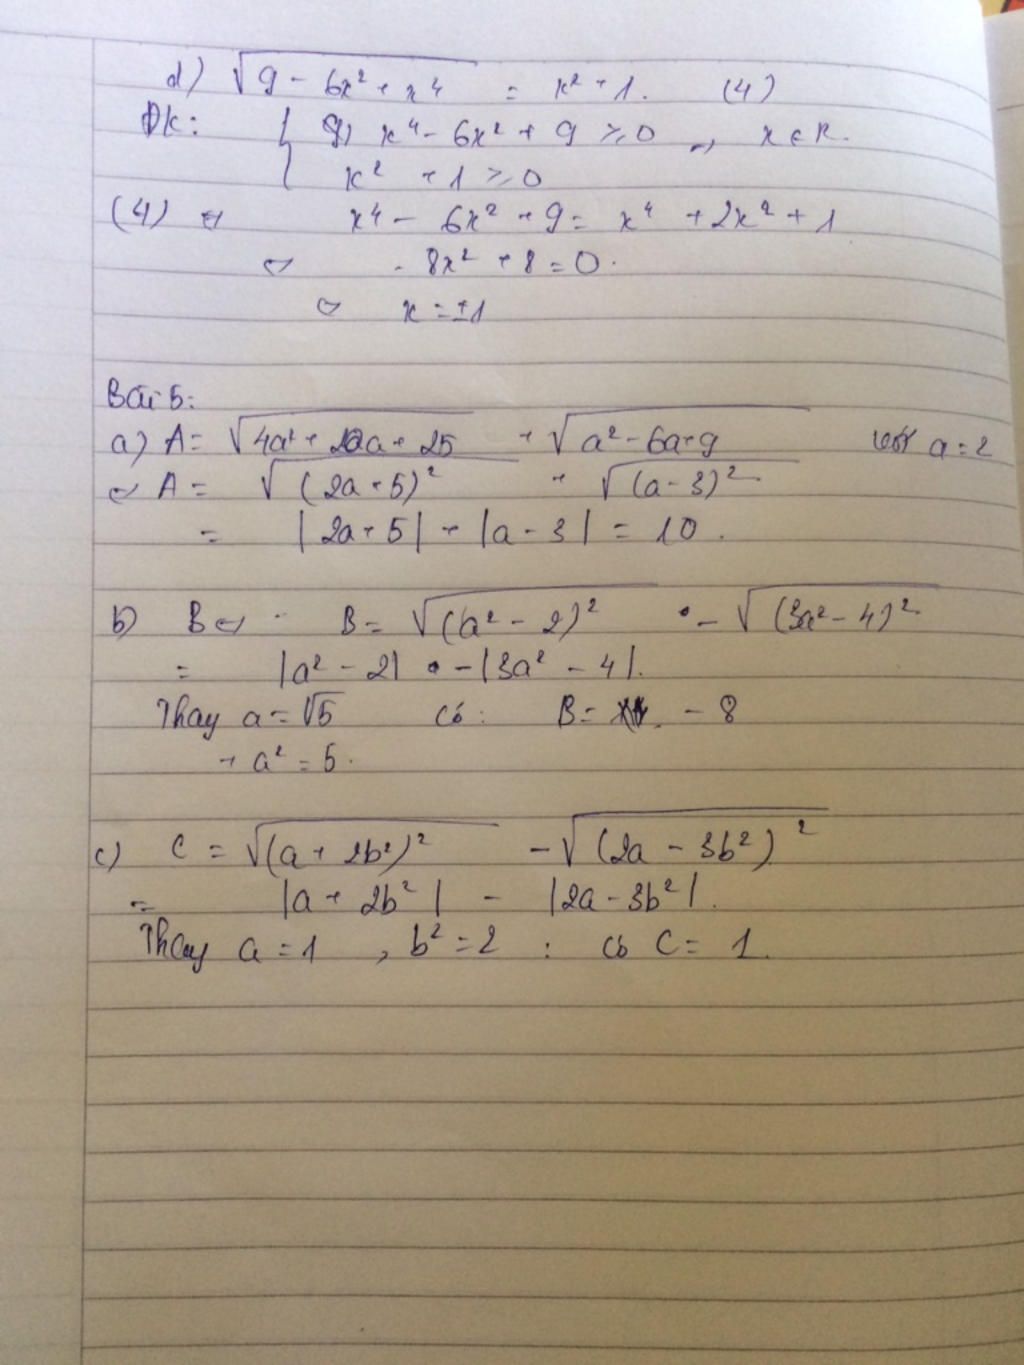 d) √(9 - 6x² + x⁴) = x² + 1. (4)
Đk: { x⁴ - 6x² + 9 ≥ 0 → x ∈ R.
x² + 1 ≥ 0
(4) ⇔ x⁴ - 6x² + 9 = x⁴ + 2x² + 1
⇔ - 8x² + 8 = 0.
⇔ x = ±1
Bài 5:
a) A = √(4a² + 20a + 25) + √(a² - 6a + 9) với a = 2
⇔ A = √((2a + 5)²) + √((a - 3)²)
= |2a + 5| + |a - 3| = 10.
b) B ⇔ B = √((a² - 2)²) - √((3a² - 4)²)
= |a² - 2| - |3a² - 4|.
Thay a = √5 có: B = - 8
→ a² = 5.
c) C = √((a + 2b²)²) - √((2a - 3b²)²)
= |a + 2b²| - |2a - 3b²|.
Thay a = 1, b² = 2 : có C = 1.